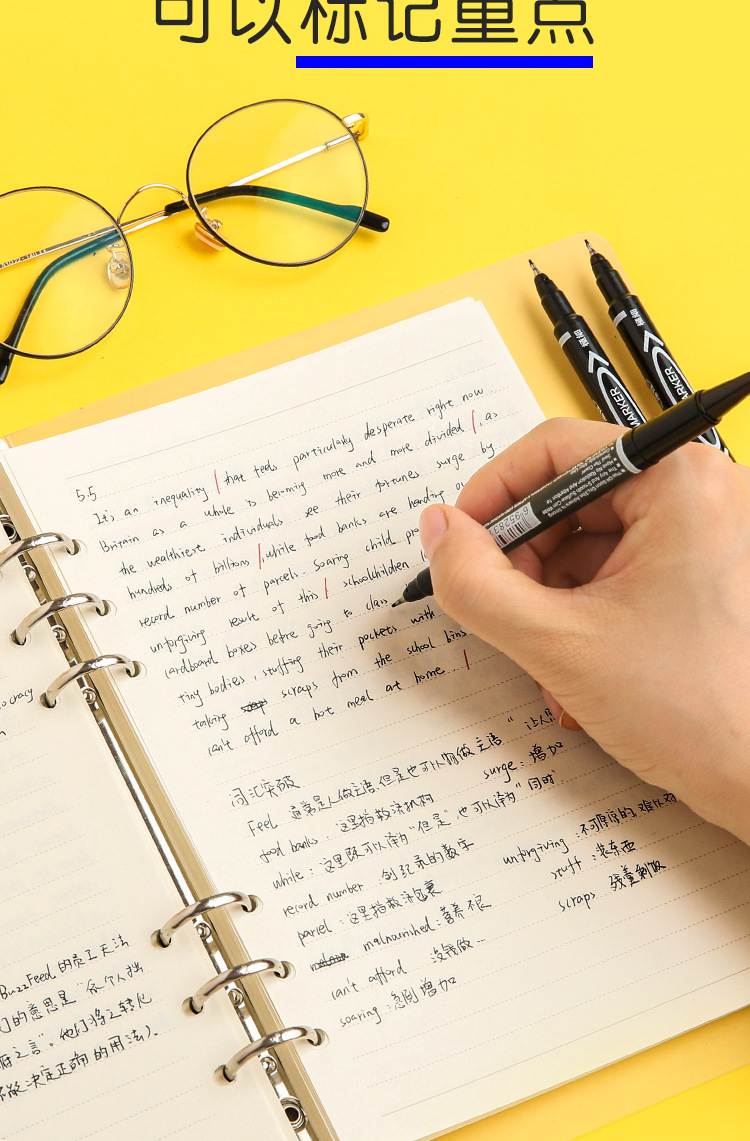 可以标记重点
5.5
It's an inequality that feels particularly desperate right now
Britain as a whole is becoming more and more divided, as
the wealthiest individuals see their fortunes surge by
hundreds of billions, while food banks are handing
record number of parcels. Soaring child
unforgiving result of this schoolchildren
cardboard boxes before going to class
tiny bodies, stuffing their pockets with
taking scraps from the school bins
can't afford a hot meal at home.
词汇突破
Feel 通常是人做主语,但是也可以物做主语"
food banks: 这里指救济机构 surge: 增加
while: 这里既可以译为"但是",也可以译为"同时"
record number 创纪录的数字
parcel: 这里指救济包裹 unforgiving 不可原谅的,难以
malnourished: 营养不良 stuff: 装东西
can't afford 没钱做… scraps 残羹剩饭
soaring: 急剧增加
ocracy
BuzzFeed 的员工无法
们的意思是"
之言"。他们将之转化
决定正确的用法).
MARKER
MARKER